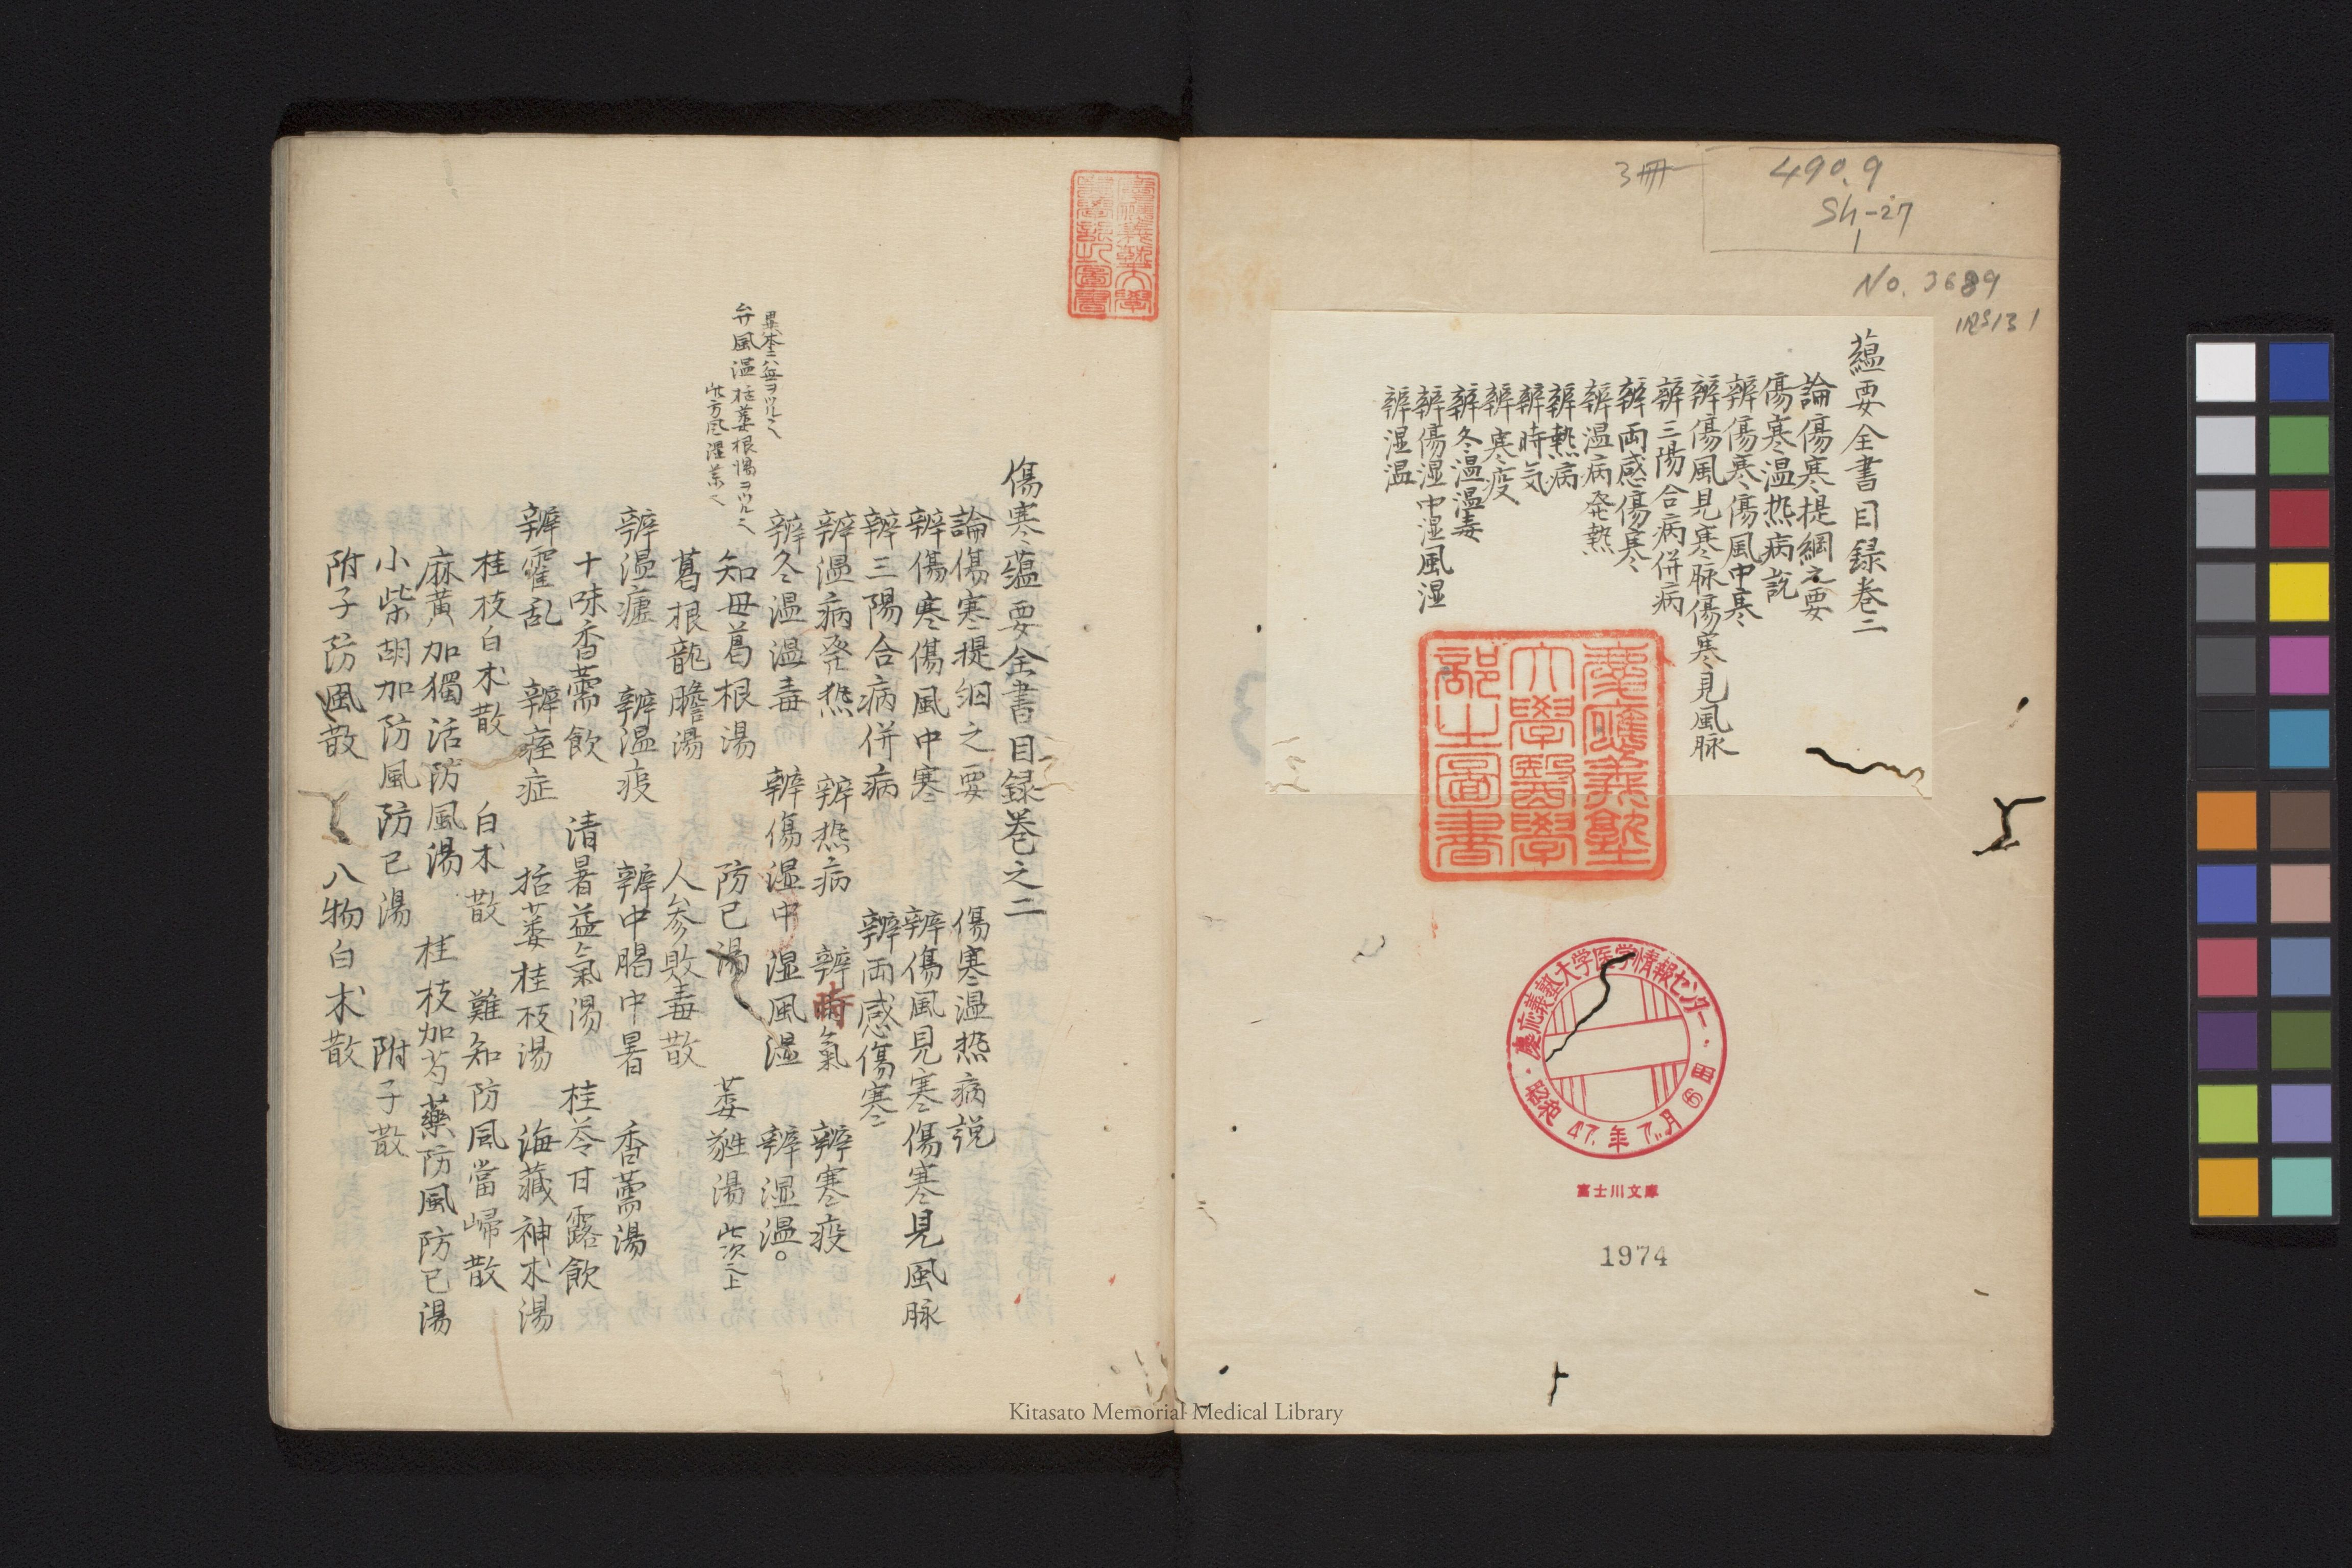 3冊
490.9
Sh-27
1
No. 3689
蘊要全書目録巻二
論傷寒提綱之要
傷寒温热病説
辨傷寒傷風中寒
辨傷風見寒脉傷寒見風脉
辨三陽合病併病
辨両感傷寒
辨温病発熱
辨熱病
辨時気
辨寒疫
辨冬温温毒
辨傷湿中湿風湿
辨湿温
慶應義塾
大學醫學
部圖書
慶応義塾大学医学情報センター
昭和47.年7.月6日
富士川文庫
1974
傷寒蘊要全書目録巻之二
論傷寒提綱之要 傷寒温热病説
辨傷寒傷風中寒 辨傷風見寒傷寒見風脉
辨三陽合病併病 辨両感傷寒
辨温病発热 辨热病 辨時氣 辨寒疫
辨冬温温毒 辨傷湿中湿風湿 辨湿温。
知母葛根湯 防已湯 葳蕤湯 此次之上
葛根龍膽湯 人参敗毒散
辨温瘧 辨温疫 辨中暍中暑 香薷湯
十味香薷飲 清暑益氣湯 桂苓甘露飲
辨霍乱 辨痓症 括蔞桂枝湯 海藏神术湯
桂枝白术散 白术散 難知防風當歸散
麻黄加獨活防風湯 桂枝加芍藥防風防已湯
小柴胡加防風防已湯 附子散
附子防風散 八物白术散
Kitasato Memorial Medical Library